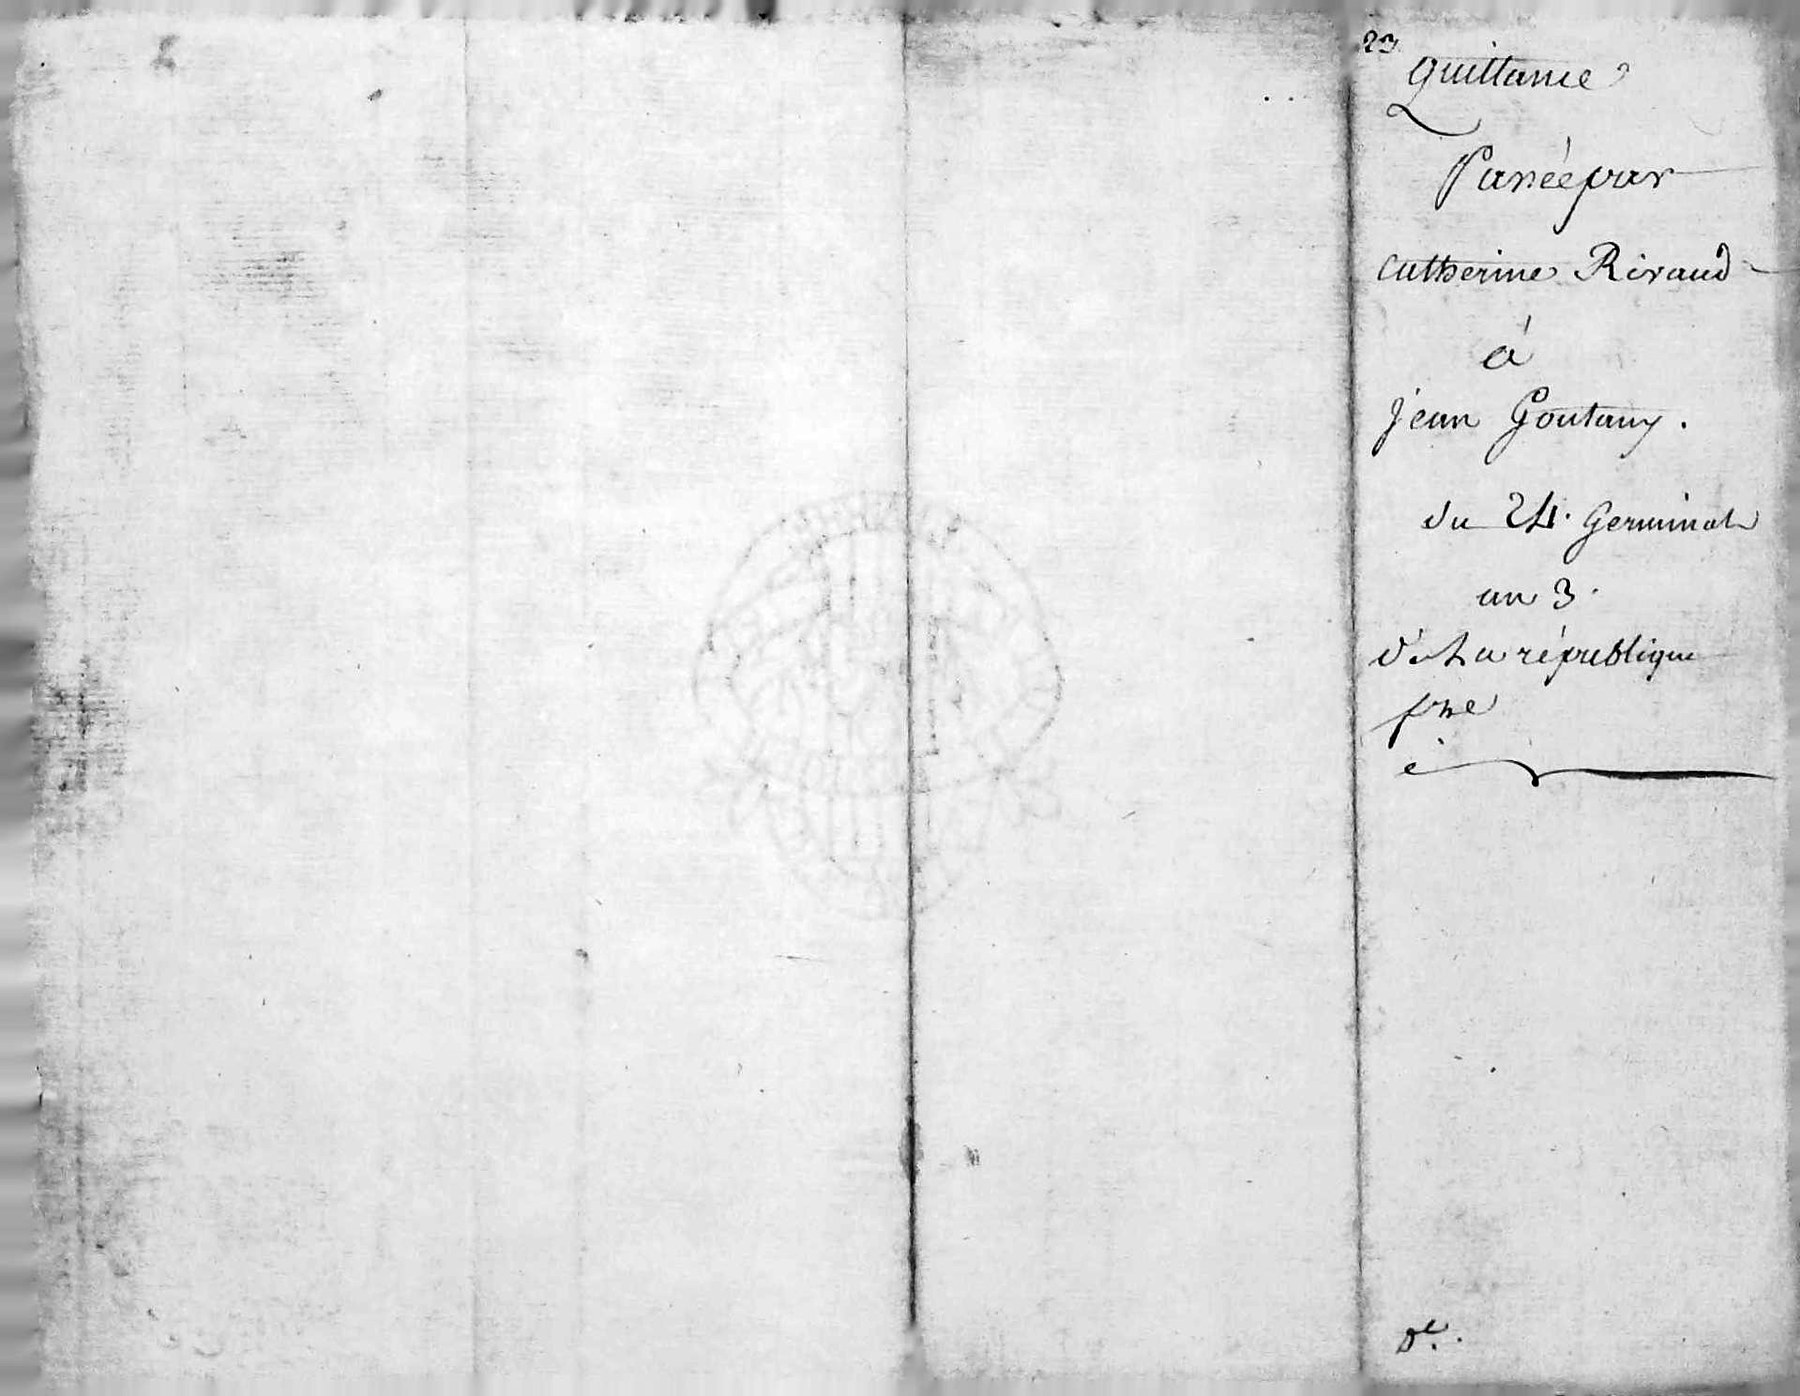 23
Quittance
Passée par
Catherine Rivaud
à
jean Goutany.
du 24. Germinal
an 3.
de La république
fne
Dt.